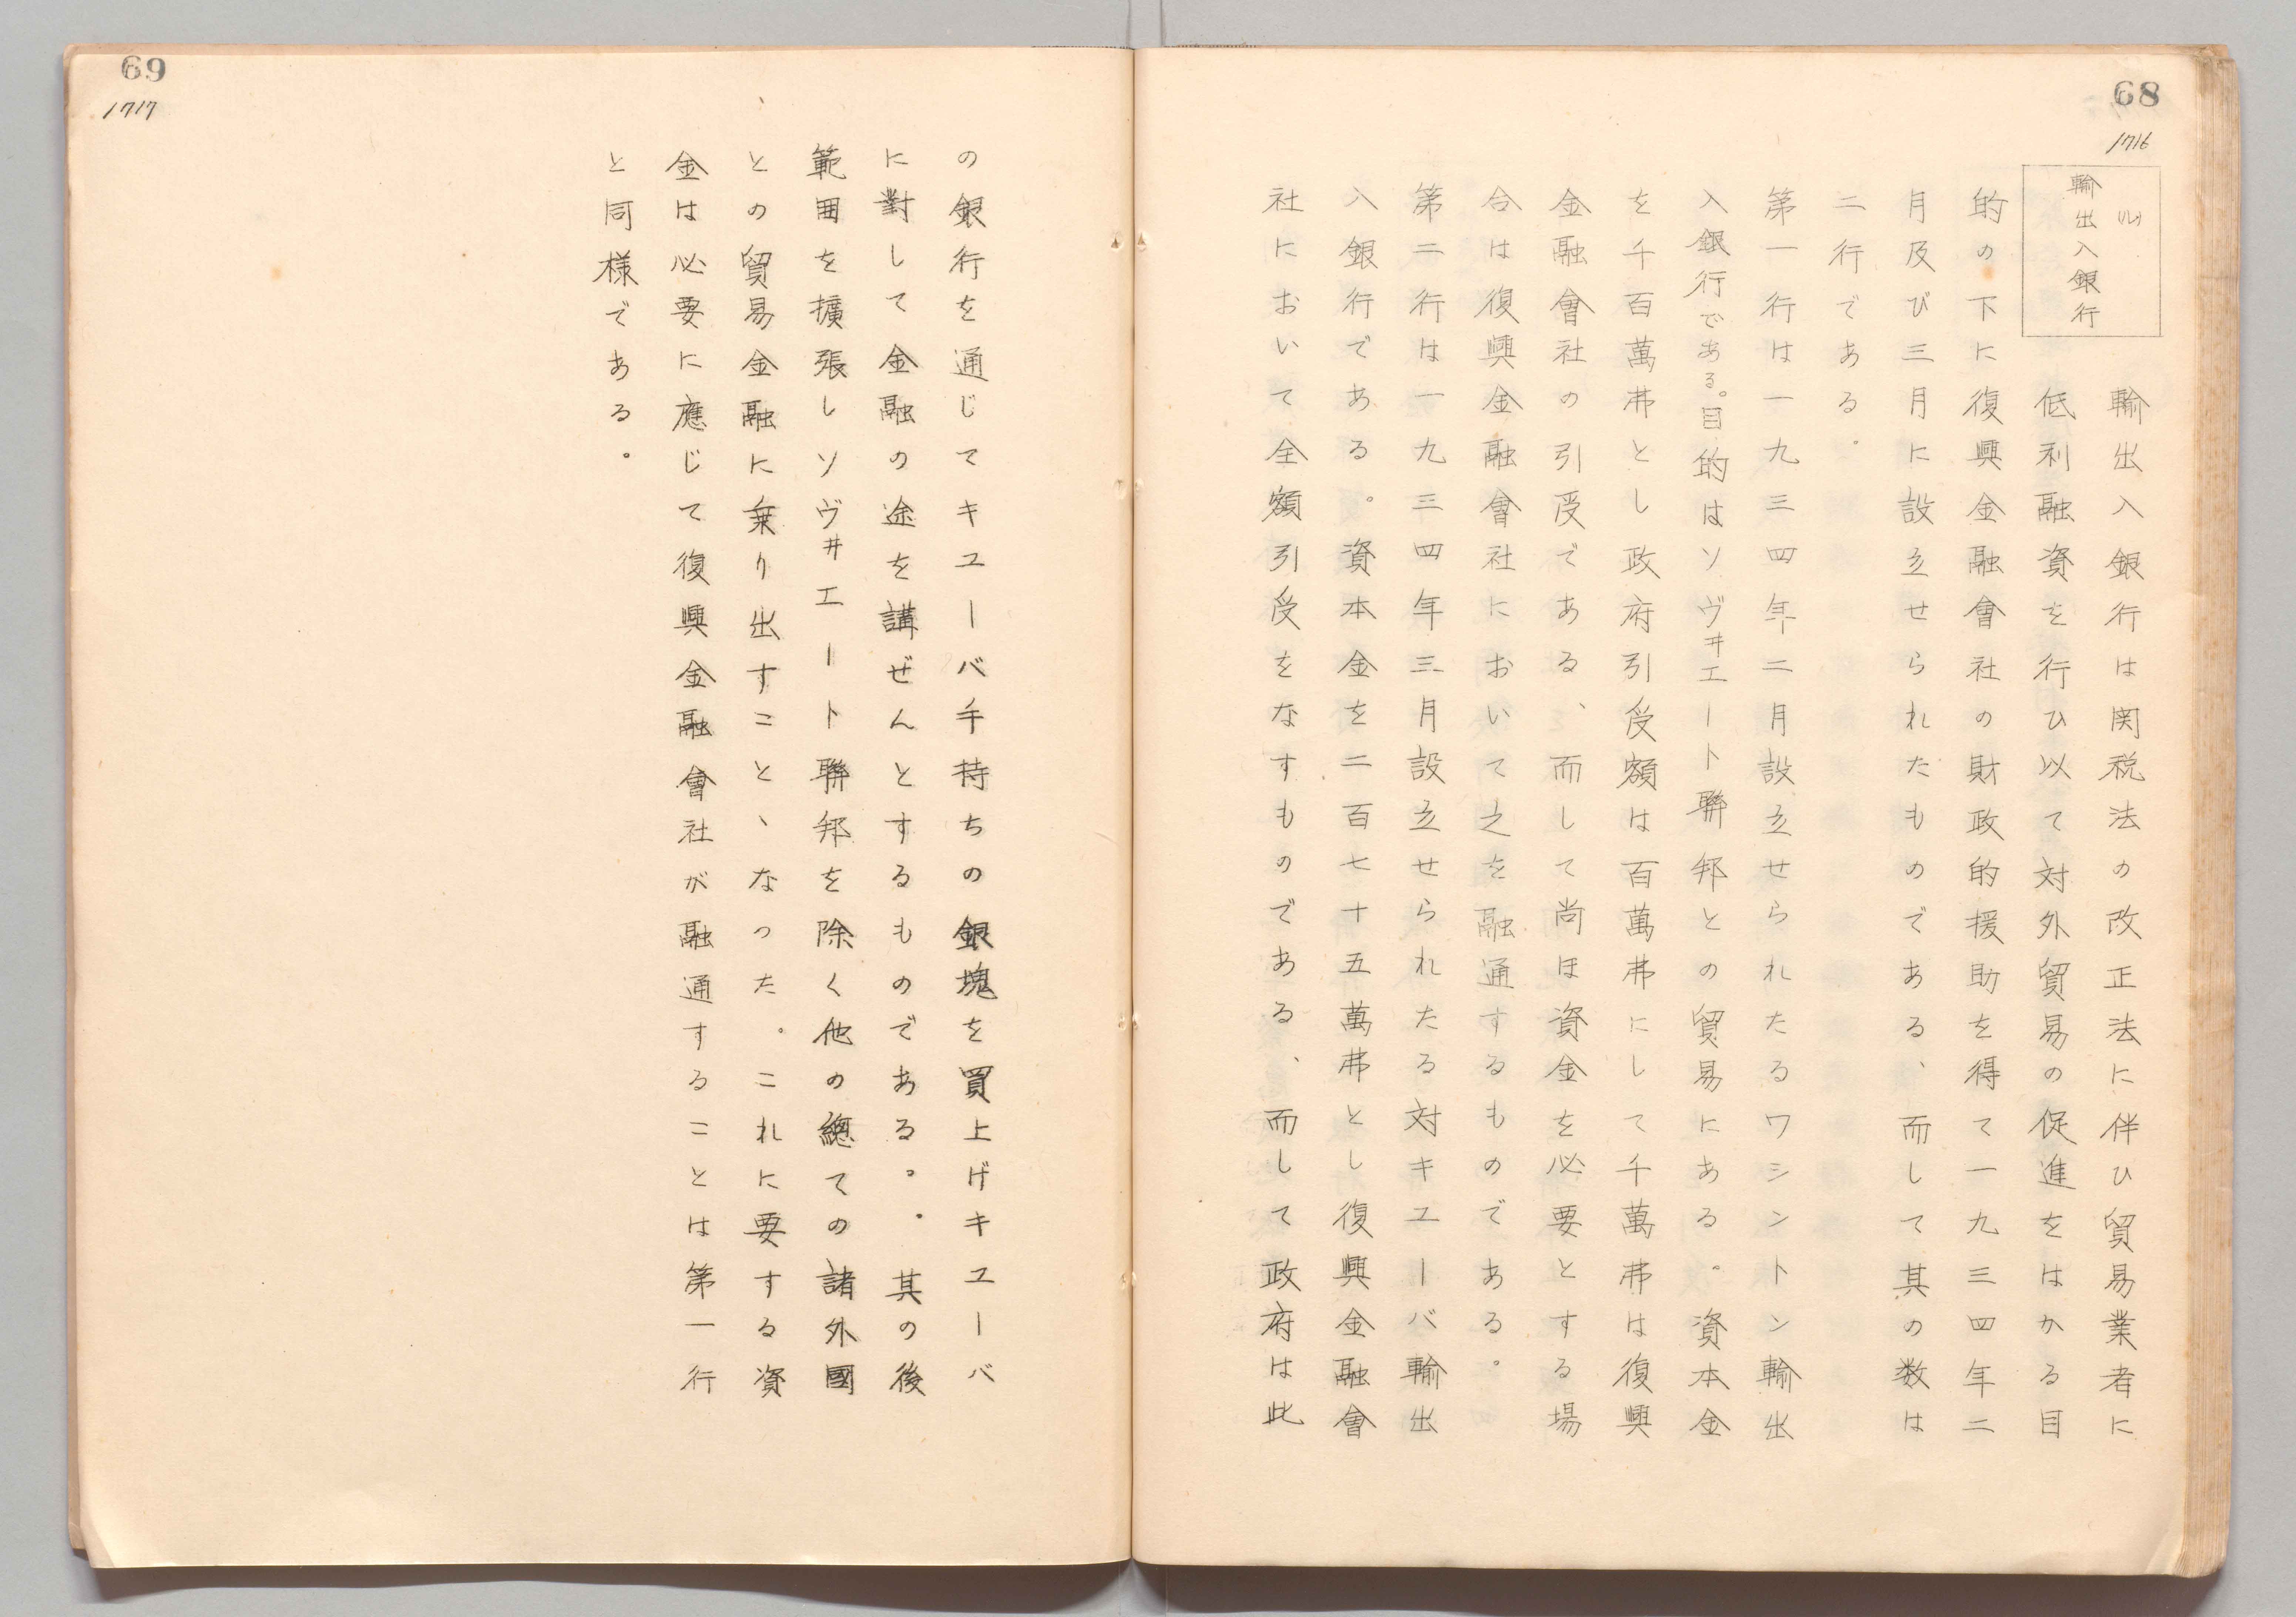 68
1716
(ル)
輸出入銀行
輸出入銀行は関税法の改正法に伴ひ貿易業者に
低利融資を行ひ以て対外貿易の促進をはかる目
的の下に復興金融會社の財政的援助を得て一九三四年二
月及び三月に設立せられたものである、而して其の数は
二行である。
第一行は一九三四年二月設立せられたるワシントン輸出
入銀行である。目的はソヴヰエート聯邦との貿易にある。資本金
を千百萬弗とし政府引受額は百萬弗にして千萬弗は復興
金融會社の引受である、而して尚ほ資金を必要とする場
合は復興金融會社において之を融通するものである。
第二行は一九三四年三月設立せられたる対キユーバ輸出
入銀行である。資本金を二百七十五萬弗とし復興金融會
社において全額引受をなすものである、而して政府は此
69
1717
の銀行を通じてキユーバ手持ちの銀塊を買上げキユーバ
に對して金融の途を講ぜんとするものである。。其の後
範囲を擴張しソヴヰエート聯邦を除く他の總ての諸外國
との貿易金融に乗り出すことゝなった。これに要する資
金は必要に應じて復興金融會社が融通することは第一行
と同様である。